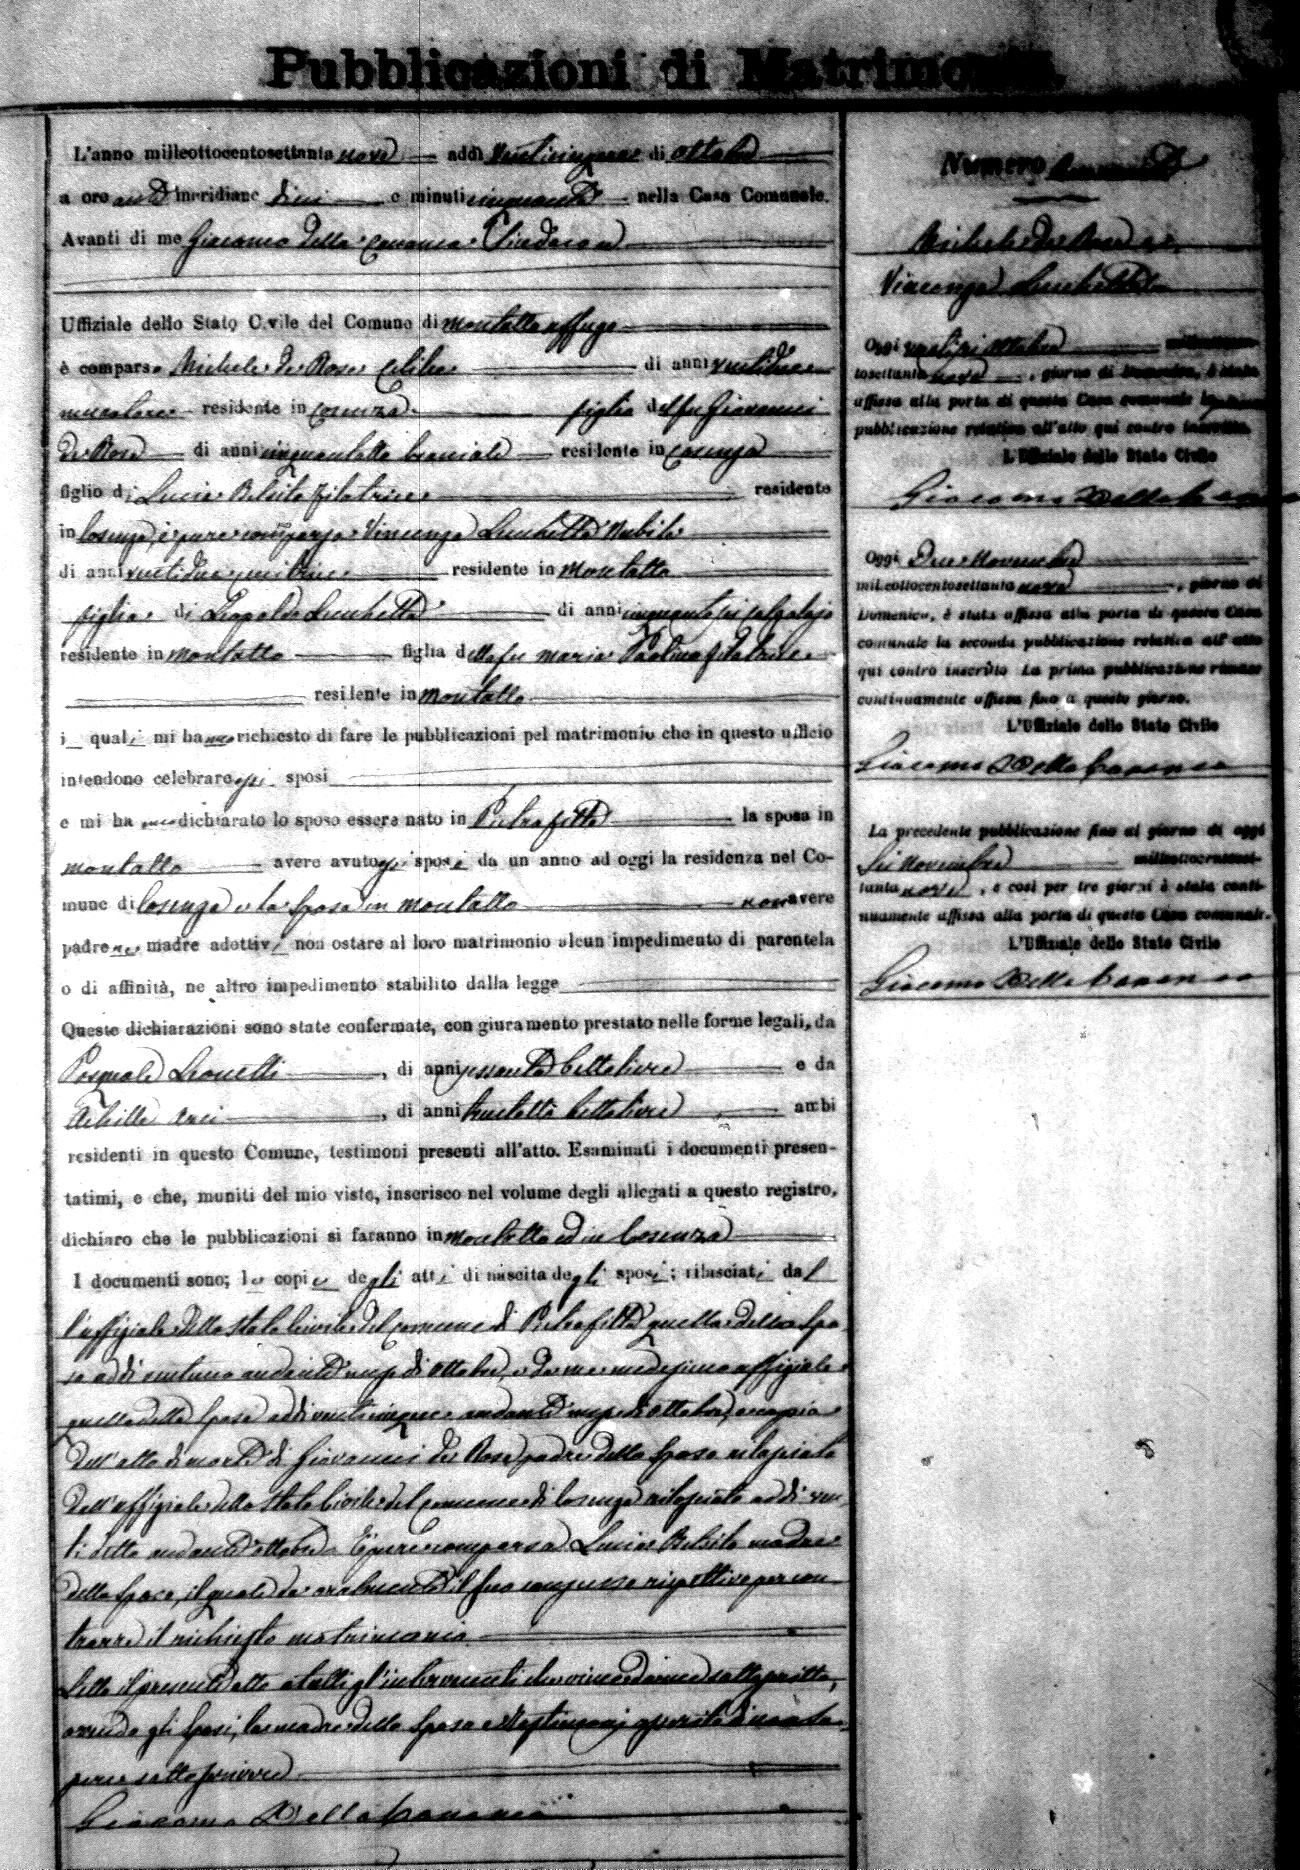 Pubblicazioni di Matrimonio
L'anno milleottocentosettanta nove addì venticinque di ottobre
a ore anti meridiane dieci e minuti cinquanta nella Casa Comunale.
Avanti di me Giacomo Della Cananea Sindaco
Uffiziale dello Stato Civile del Comune di Montalto Uffugo
è comparso Michele de Rose celibe di anni ventidue
residente in Cosenza figlio del fu Giovanni
de Rose di anni cinquantotto bracciale residente in Cosenza
figlio di Lucia Belsito filatrice residente
in Cosenza, è pure comparsa Vincenza Lucchetta nubile
di anni ventidue residente in Montalto
figlia di Leopoldo Lucchetta di anni cinquantasei calzolajo
residente in Montalto figlia della fu Maria filatrice
residente in Montalto
i quali mi hanno richiesto di fare le pubblicazioni pel matrimonio che in questo ufficio
intendono celebrare essi sposi
e mi hanno dichiarato lo sposo essere nato in Pietrafitta la sposa in
Montalto avere avuto gli sposi da un anno ad oggi la residenza nel Co-
mune di Cosenza e la sposa in Montalto non avere
padre ne madre adottivi non ostare al loro matrimonio alcun impedimento di parentela
o di affinità, ne altro impedimento stabilito dalla legge
Queste dichiarazioni sono state confermate, con giuramento prestato nelle forme legali, da
Pasquale Leonetti, di anni sessanta bettoliere e da
Achille, di anni trentotto bettoliere ambi
residenti in questo Comune, testimoni presenti all'atto. Esaminati i documenti presen-
tatimi, e che, muniti del mio visto, inserisco nel volume degli allegati a questo registro,
dichiaro che le pubblicazioni si faranno in Montalto ed in Cosenza
I documenti sono; le copie degli atti di nascita degli sposi; rilasciati dal
l'uffiziale dello stato civile del comune di Pietrafitta quella dello spo-
so addì ventuno andante mese di ottobre, e da me medesimo uffiziale
quella della sposa addì venticinque andante mese di ottobre, e copia
dell'atto di morte di Giovanni de Rose padre dello sposo rilasciata
dall'uffiziale dello stato civile del comune di Cosenza rilasciata addì ven-
ti detto andante ottobre. È pure comparsa Lucia Belsito madre
dello sposo, il quale da oralmente il suo consenso rispettivo per con-
trarre il richiesto matrimonio
Letto il presente atto a tutti gl'intervenuti viene da me sottoscritto,
avendo gli sposi, la madre dello sposo e testimoni asserito di non sa-
pere sottoscrivere
Giacomo Della Cananea
Numero
Michele de Rose e
Vincenza Lucchetta
Oggi ventisei ottobre milleottocen-
tosettanta nove, giorno di Domenica, è stata
affissa alla porta di questa Casa comunale la prima
pubblicazione relativa all'atto qui contro inscritto.
L'Uffiziale dello Stato Civile
Giacomo Della Cananea
Oggi due Novembre
milleottocentosettanta nove, giorno di
Domenica, è stata affissa alla porta di questa Casa
comunale la seconda pubblicazione relativa all'atto
qui contro inscritto La prima pubblicazione rimase
continuamente affissa fino a questo giorno.
L'Uffiziale dello Stato Civile
Giacomo Della Cananea
La precedente pubblicazione fino al giorno di oggi
sei Novembre milleottocentoset-
tanta nove, e così per tre giorni è stata conti-
nuamente affissa alla porta di questa Casa comunale.
L'Uffiziale dello Stato Civile
Giacomo Della Cananea